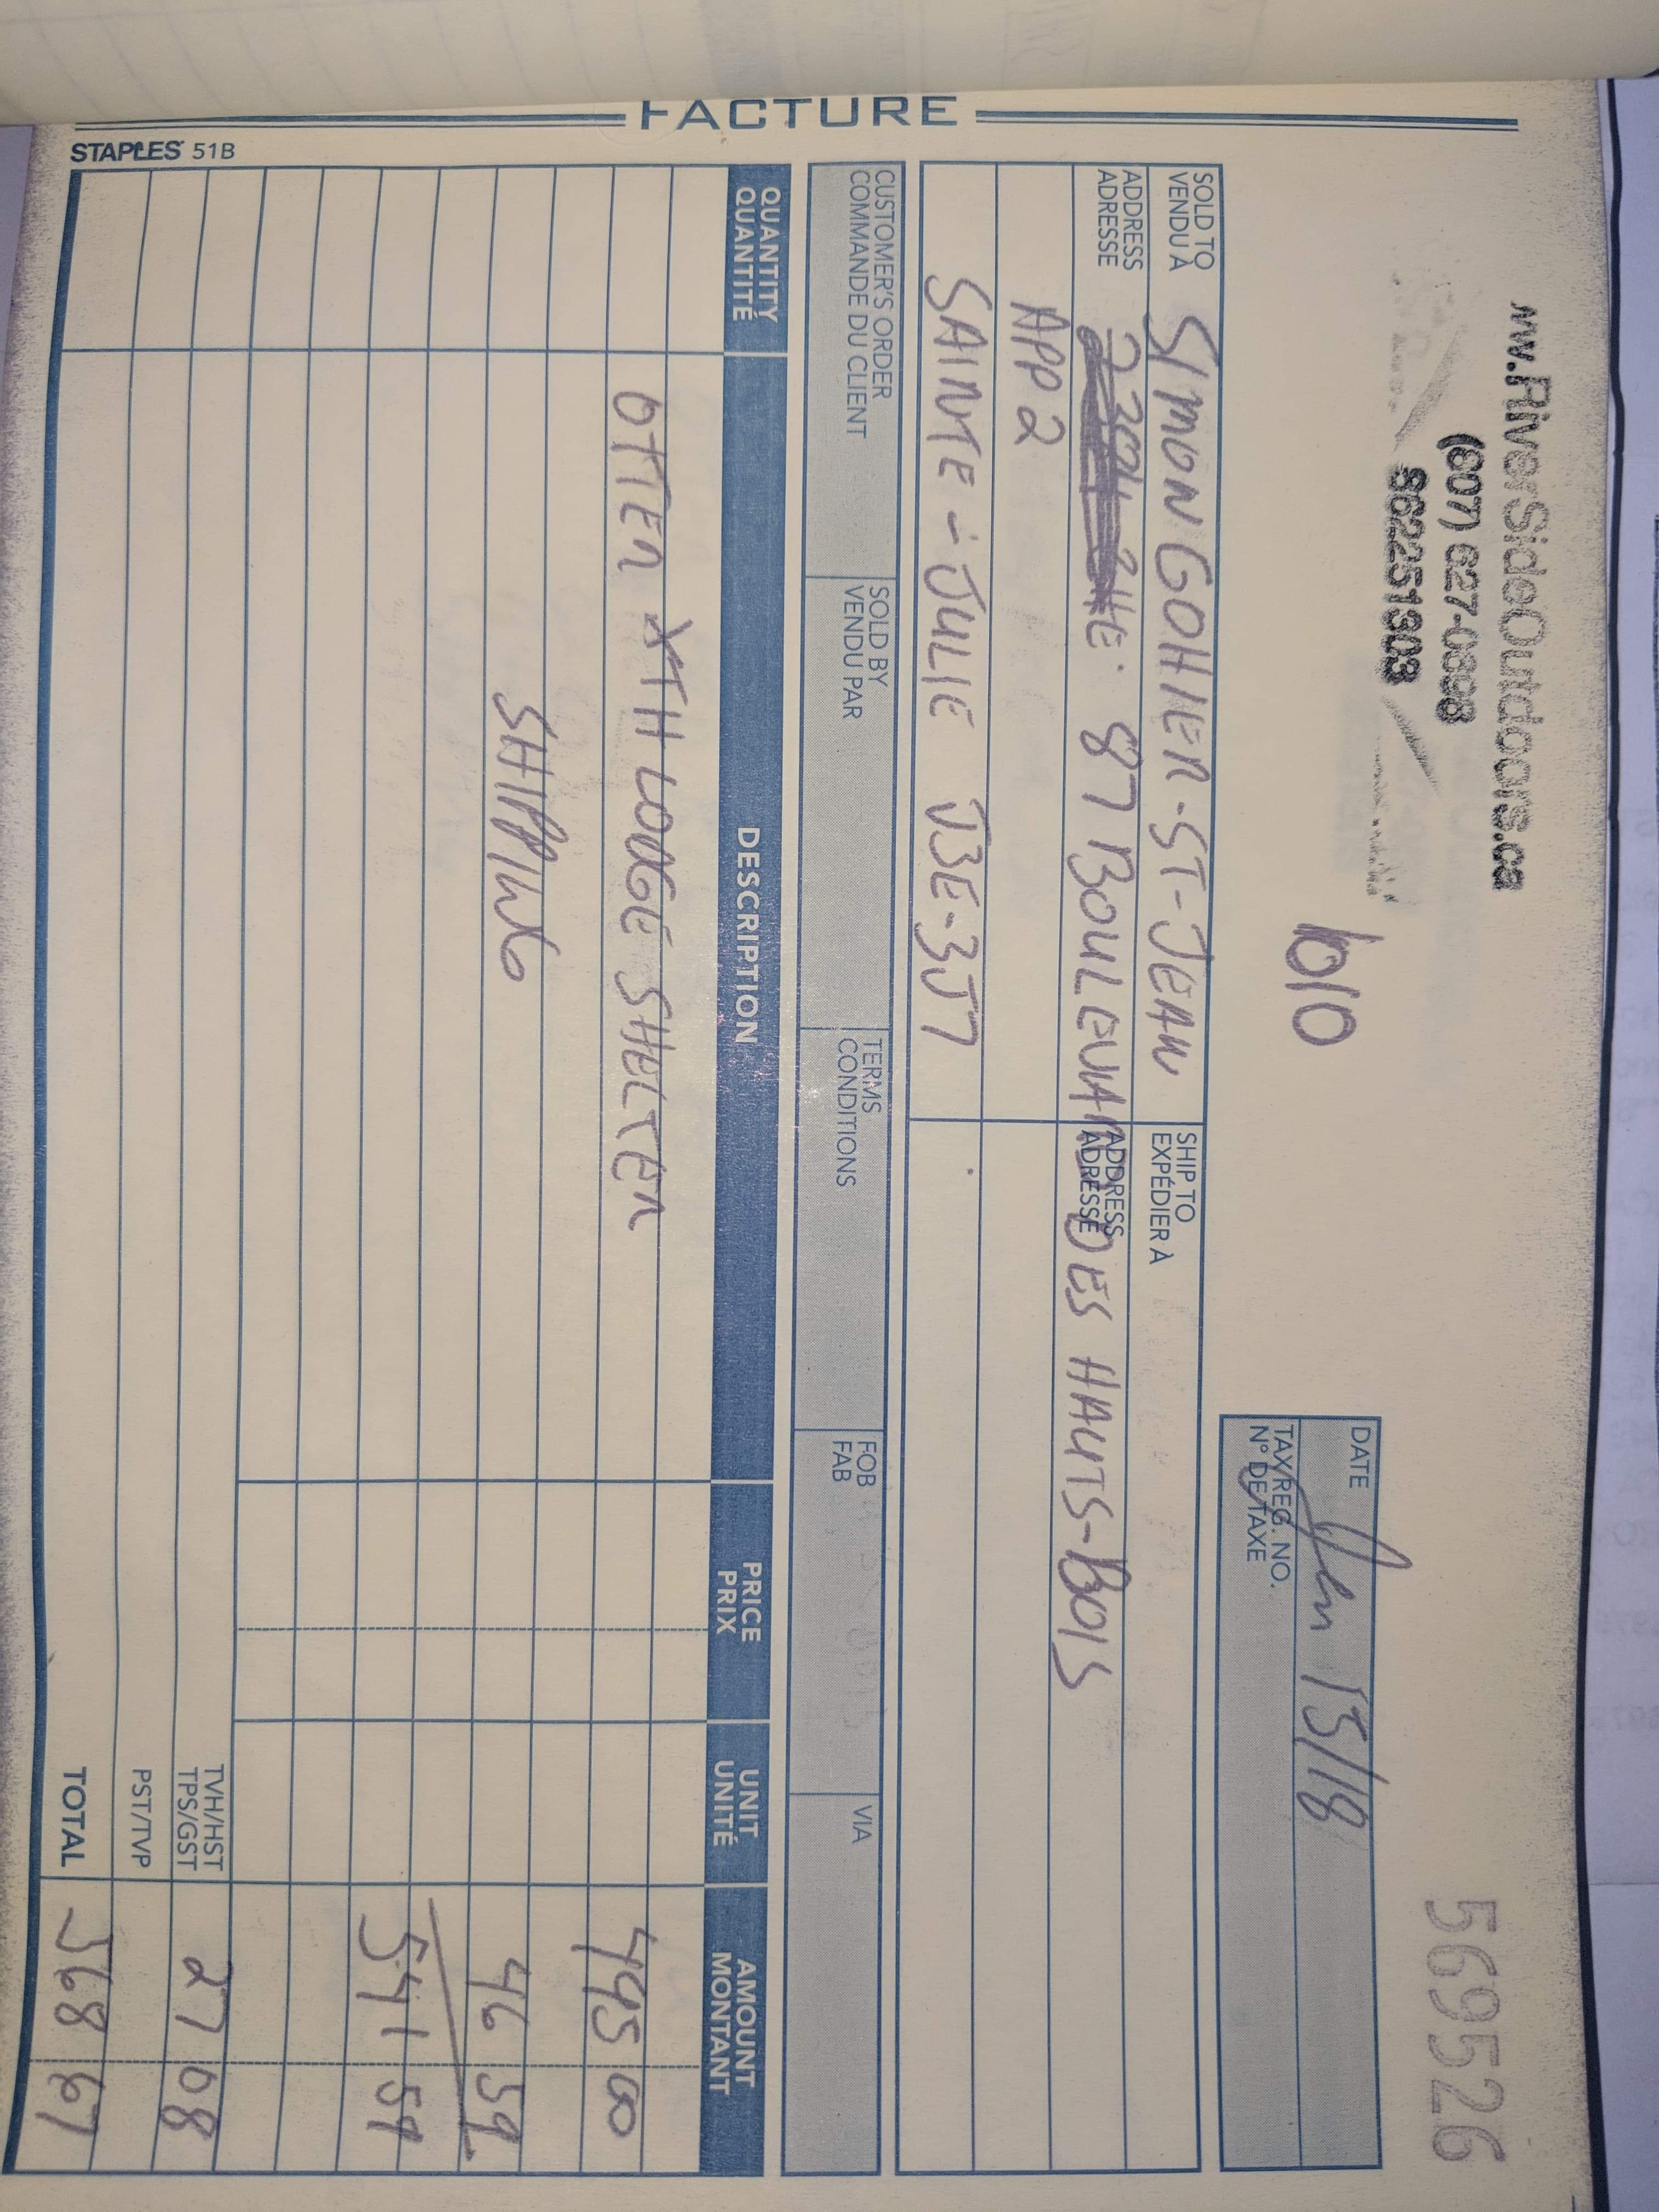 ww.RiverSideOutdoors.ca
(807) 627-0898
862251903
010
569526
DATE Jan 15/18
TAX REG. NO.
N° DE TAXE
SOLD TO
VENDU À
SIMON GOHIER-ST-JEAN
SHIP TO
EXPÉDIER À
ADDRESS
ADRESSE
87 BOULEVARD DES HAUTS-BOIS
ADDRESS
ADRESSE
APP 2
SAINTE-JULIE J3E-3J7
CUSTOMER'S ORDER
COMMANDE DU CLIENT
SOLD BY
VENDU PAR
TERMS
CONDITIONS
FOB
FAB
VIA
QUANTITY
QUANTITÉ
DESCRIPTION
PRICE
PRIX
UNIT
UNITÉ
AMOUNT
MONTANT
OTTER XTH LODGE SHELTER 495 00
SHIPPING 46 59
541 59
TVH/HST
TPS/GST
27 08
PST/TVP
TOTAL 568 67
STAPLES 51B
FACTURE